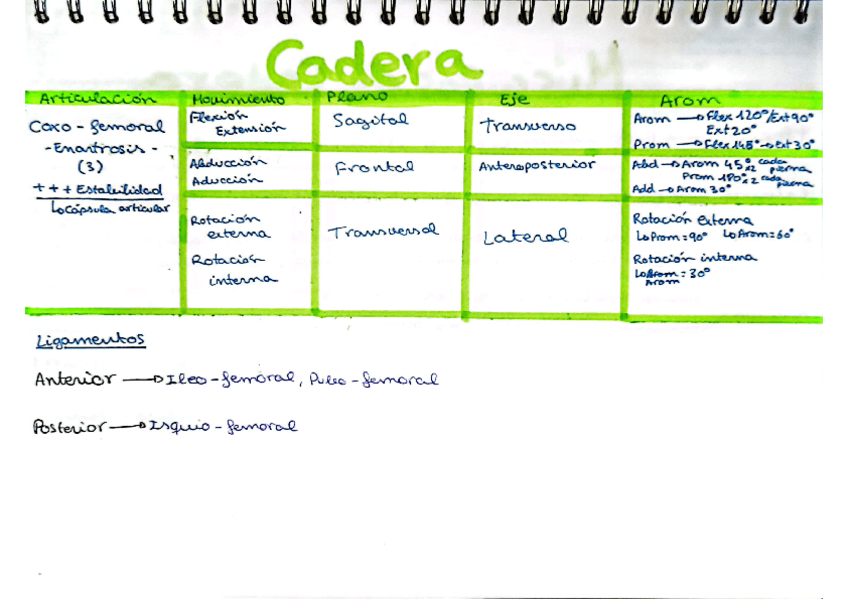 Cadera
Articulación Movimiento Plano Eje Arom
Coxo-femoral
-Enartrosis-
(3)
+++Estabilidad
↳cápsula articular
Flexión
Extensión
Sagital
Transverso
Arom → Flex 120°/Ext 90°
Ext 20°
Prom → Flex 145° → Ext 30°
Abducción
Aducción
Frontal
Anteroposterior
Abd → Arom 45°x2 cada pierna
Prom 180°x2 cada pierna
Add → Arom 30°
Rotación
externa
Rotación
interna
Transversal
Lateral
Rotación externa
↳Prom=90° ↳Arom=60°
Rotación interna
↳Arom=30°
Arom
Ligamentos
Anterior → Ileo-femoral, Pubo-femoral
Posterior → Isquio-femoral